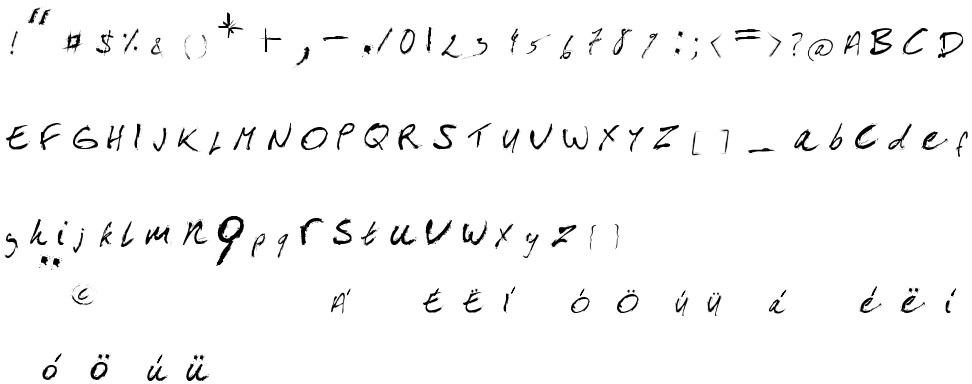 ! " # $ % & ( ) * + , - . / 0 1 2 3 4 5 6 7 8 9 : ; < = > ? @ A B C D
E F G H I J K L M N O P Q R S T U V W X Y Z [ ] _ a b c d e f
g h i j k l m n o p q r s t u v w x y z { }
¨ © Á É Ë Í Ó Ö Ú Ü á é ë í
ó ö ú ü